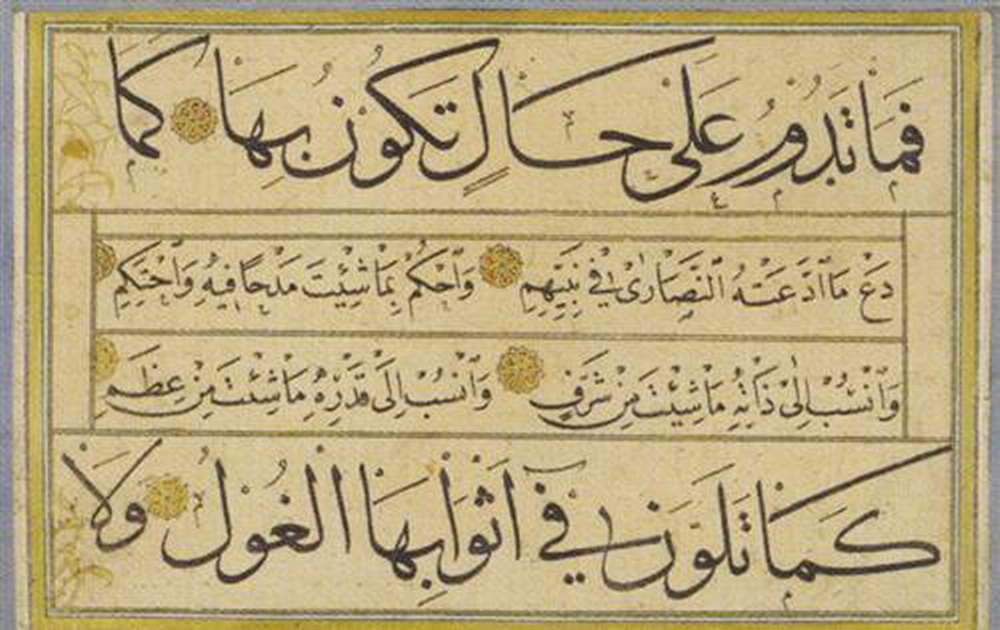 فَمَا تَدُومُ عَلَى حَالٍ تَكُونُ بِهَا كَمَا
دَعْ مَا ادَّعَتْهُ النَّصَارَىٰ فِي نَبِيِّهِمِ وَاحْكُمْ بِمَا شِئْتَ مَدْحًا فِيهِ وَاحْتَكِمِ
وَانْسُبْ إِلَىٰ ذَاتِهِ مَا شِئْتَ مِنْ شَرَفٍ وَانْسُبْ إِلَى قَدْرِهِ مَا شِئْتَ مِنْ عِظَمِ
كَمَا تَلَوَّنَ فِي أَثْوَابِهَا الْغُولُ وَلَا